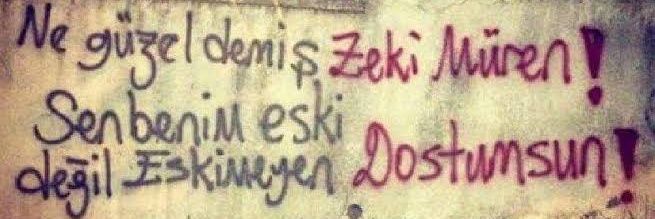 Ne güzel demiş Zeki Müren!
Sen benim eski
değil Eskimeyen Dostumsun!